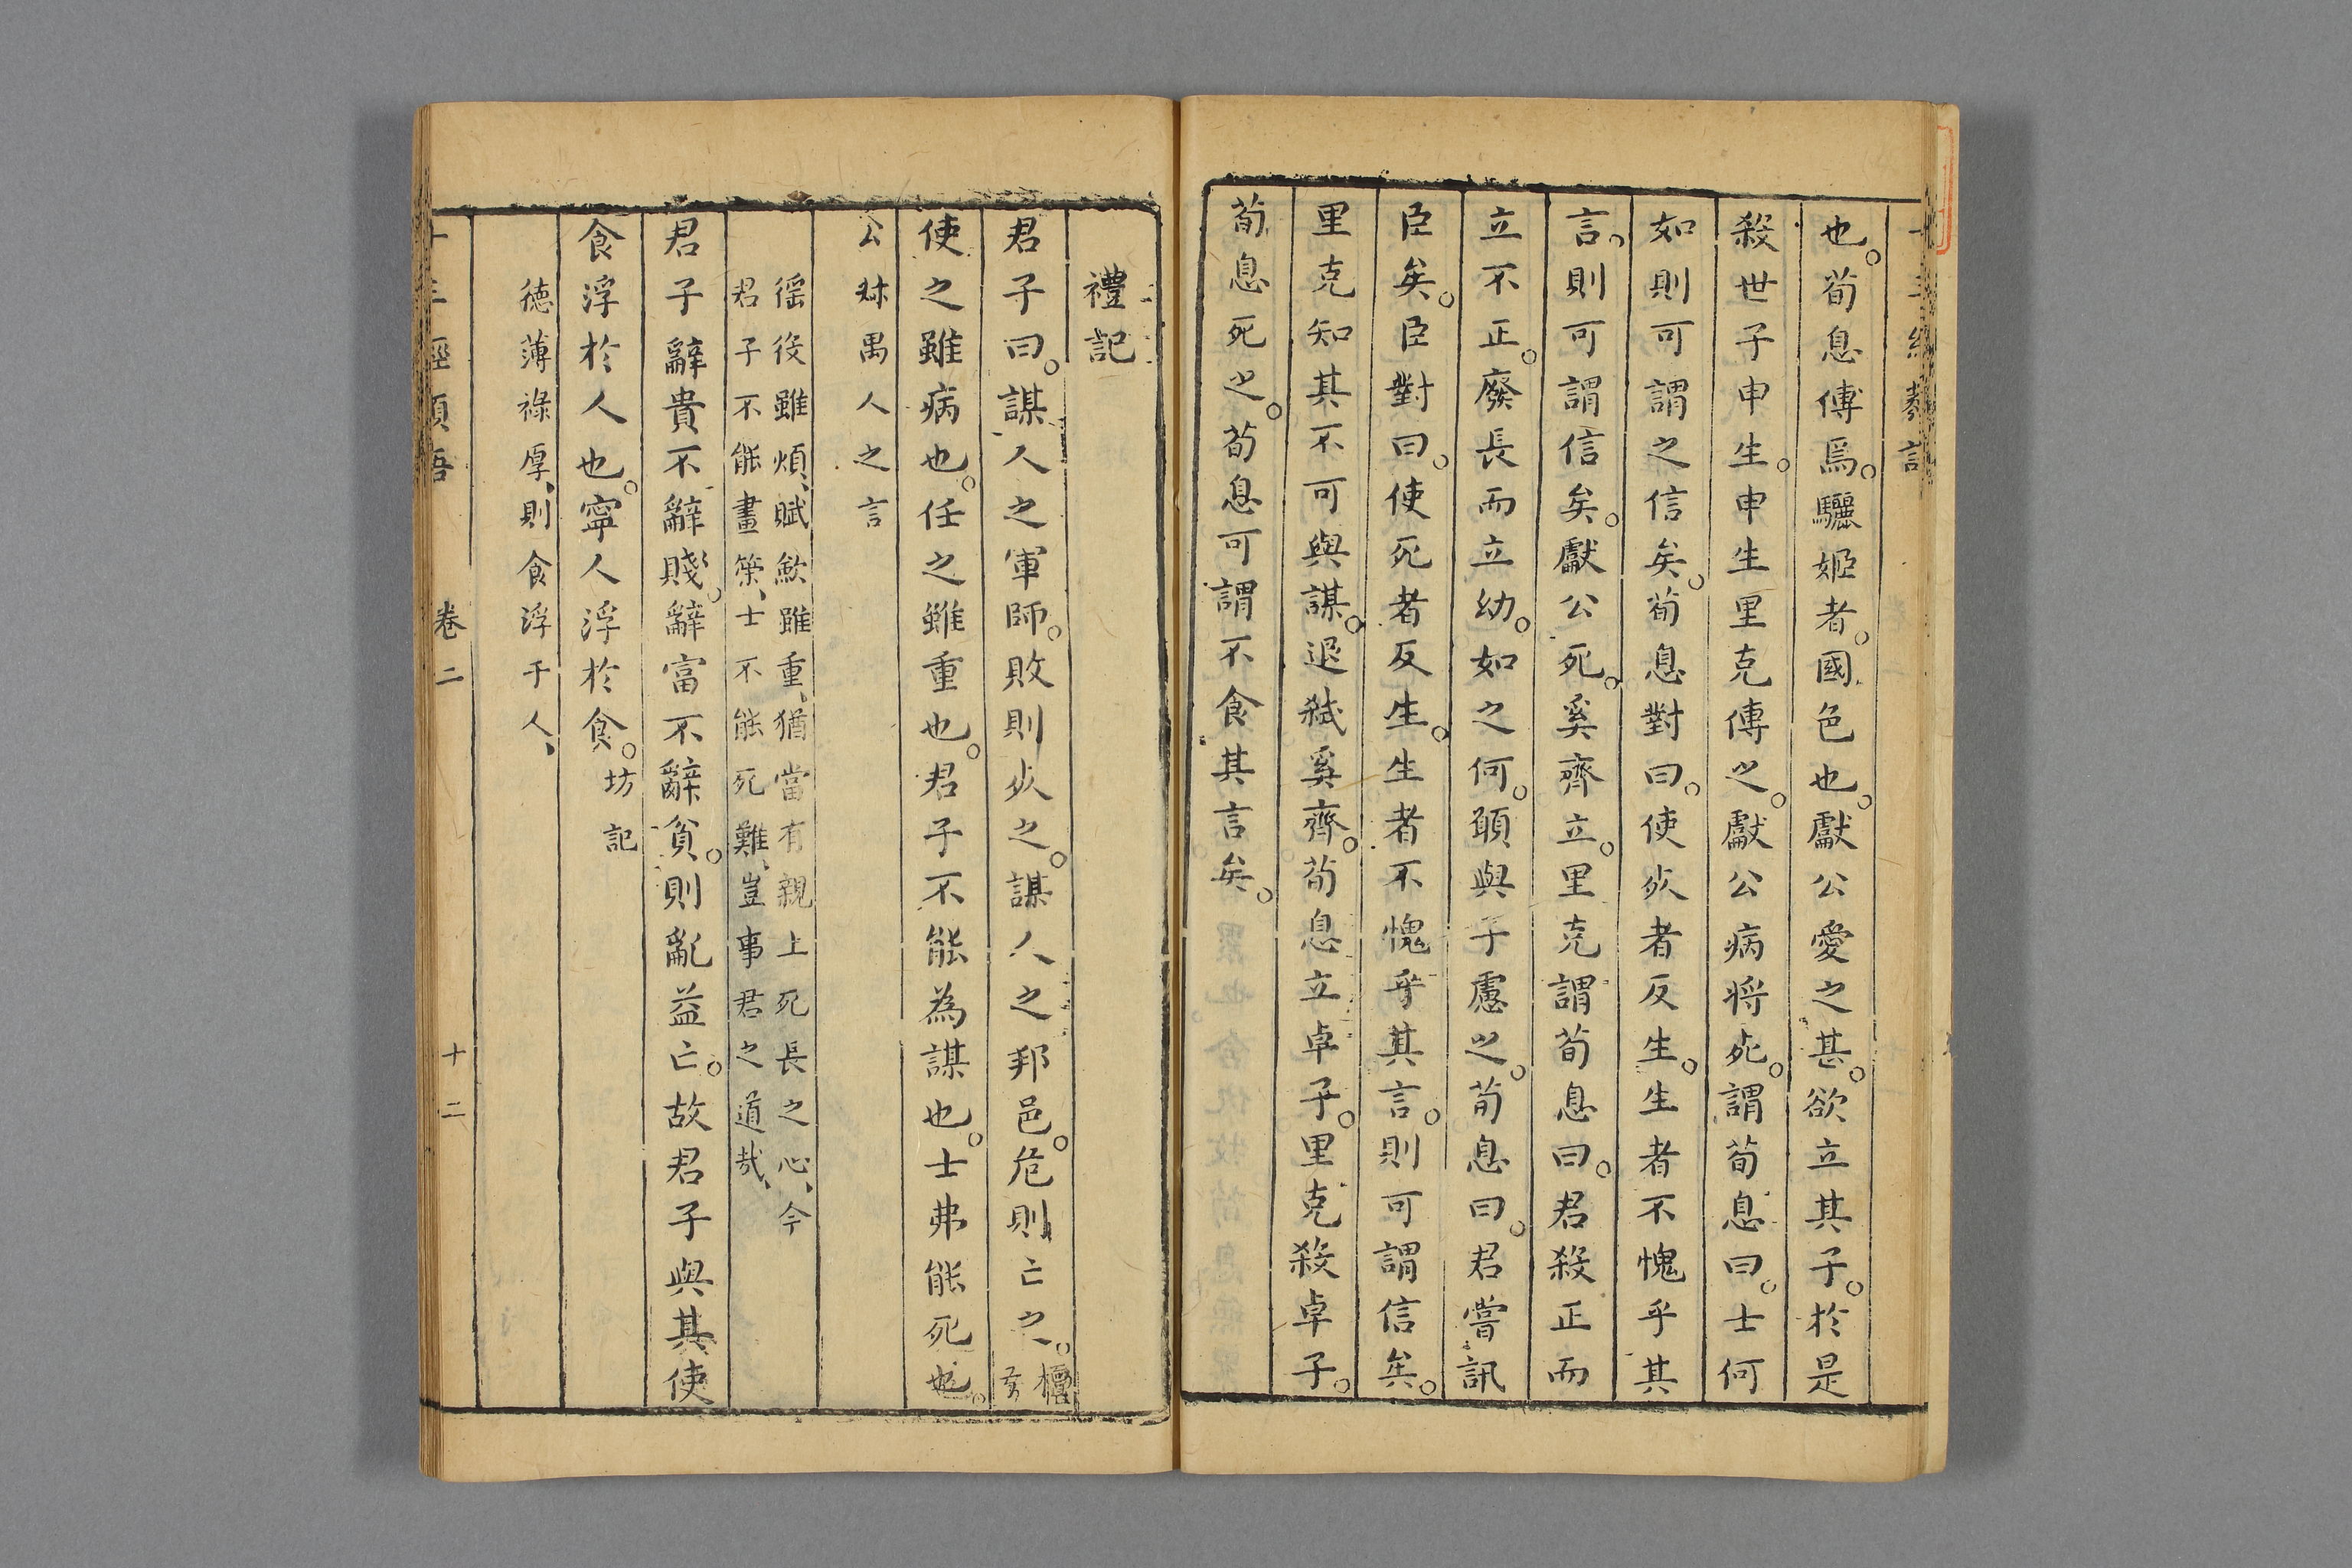 也。荀息傅焉。驪姬者。國色也。獻公愛之甚。欲立其子。於是
殺世子申生。申生里克傅之。獻公病將死。謂荀息曰。士何
如則可謂之信矣。荀息對曰。使死者反生。生者不愧乎其
言。則可謂信矣。獻公死。奚齊立。里克謂荀息曰。君殺正而
立不正。廢長而立幼。如之何。願與子慮之。荀息曰。君嘗訊
臣矣。臣對曰。使死者反生。生者不愧乎其言。則可謂信矣。
里克知其不可與謀。退弒奚齊。荀息立卓子。里克殺卓子。
荀息死之。荀息可謂不食其言矣。
禮記
君子曰。謀人之軍師。敗則死之。謀人之邦邑。危則亡之。檀弓
使之雖病也。任之雖重也。君子不能為謀也。士弗能死也。
公叔禺人之言
徭役雖煩、賦歛雖重、猶當有親上死長之心、今
君子不能畫策、士不能死難、豈事君之道哉、
君子辭貴不辭賤。辭富不辭貧。則亂益亡。故君子與其使
食浮於人也。寧人浮於食。坊記
德薄祿厚、則食浮于人、
卷二 十二